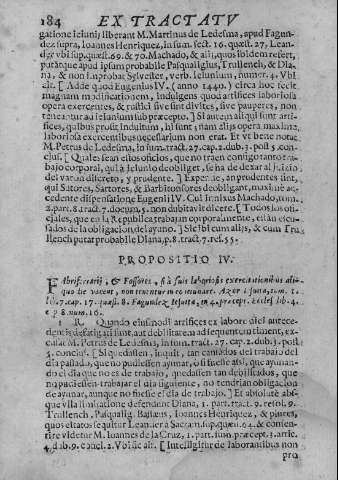 184 EX TRACTATV
gatione Ieiunij liberant M. Martinus de Ledesma, apud Fagun-
dez supra, Ioannes Henriquez, in sum. sect. 16. quæst. 27. Lean-
der vbi sup. quæst. 69. & 70. Machado, & alij, quos ibidem refert,
putatque apud ipsum probabile Pasqualigius, Trullench, & Dia-
na, & non improbat Sylvester, verb. Ieiunium, numer. 4. Vbi
ait. [ Adde quod Eugenius IV. (anno 1440.) circa hoc fecit
magnam modificationem, indulgens quod artifices laboriosa
opera exercentes, & rustici sive sint divites, sive pauperes, non
teneantur ad Ieiunium sub præcepto. ] Si autem aliqui sunt arti-
fices, quibus prosit induluum, hi sunt; nam alijs opera maxime
laboriosa exercentibus necessarium non erat. Et vt bene notat
M. Petrus de Ledesma, in sum. tract. 27. cap. 2. dub. 3. post 5. con-
clus. [ Quales sean estos oficios, que no traen consigo tanto tra-
bajo corporal, que à Ieiunio deobliget, se ha de dexar al juizio
del varon discreto, y prudente. ]
qui Sutores, Sartores, & Barbitonsores deobligant, maximè ac-
cedente dispensatione Eugenij IV. Cui Machado, tom.
2. part. 8. tract. 7. docum. 5. non dubitavit dicere. [ Todos los ofi-
ciales, que en la Republica trabajan corporalmente, estàn escu-
sados de la obligacion del ayuno. ] Sic ibi cum alijs, & cum Tru-
llench putat probabile Diana, p. 8. tract. 7. res. 55.
PROPOSITIO IV.
Fabri ferrarij, & Fossores, si à suis laboriosis exercitationibus ali-
quo die vacent, non tenentur in eo ieiunare. Azor Iesuita, tom. 1.
lib. 7. cap. 17. quæst. 8. Fagundez Iesuita, in 4. præcept. Eccles. lib. 4.
c p 8. num. 16.
1 R. Quando eiusmodi artifices ex labore diei antece-
dentis defatigati sunt, aut debilitatem ad sequentem timent, excu-
sat M. Petrus de Ledesma, in sum. tract. 27. cap. 2. dub. 3. post
5. conclus. [ Si quedassen, inquit, tan cansados del trabajo del
dia passado, que no pudiessen ayunar, ò si fuesse assi, que ayunan-
do el dia que no es de trabajo, quedassen tan debilitados, que
no pudiessen trabajar el dia siguiente, no tendrian obligacion
de ayunar, aunque no fuesse el dia de trabajo. ] Et absolutè abs-
que vlla limitatione defendunt Diana, 1. part. tract. 9. resol. 9.
Trullench, Pasqualig. Bassæus, Ioannes Henriquez, & plures,
quos citatos sequitur Leander à Sacram. sup. quæst. 64. & consen-
tire videtur M. Ioannes de la Cruz, 1. part. sum. præcept. 3. artic.
4. dub. 9. concl. 2. Vbi sic ait. [ Intelligitur de laborantibus non
pro